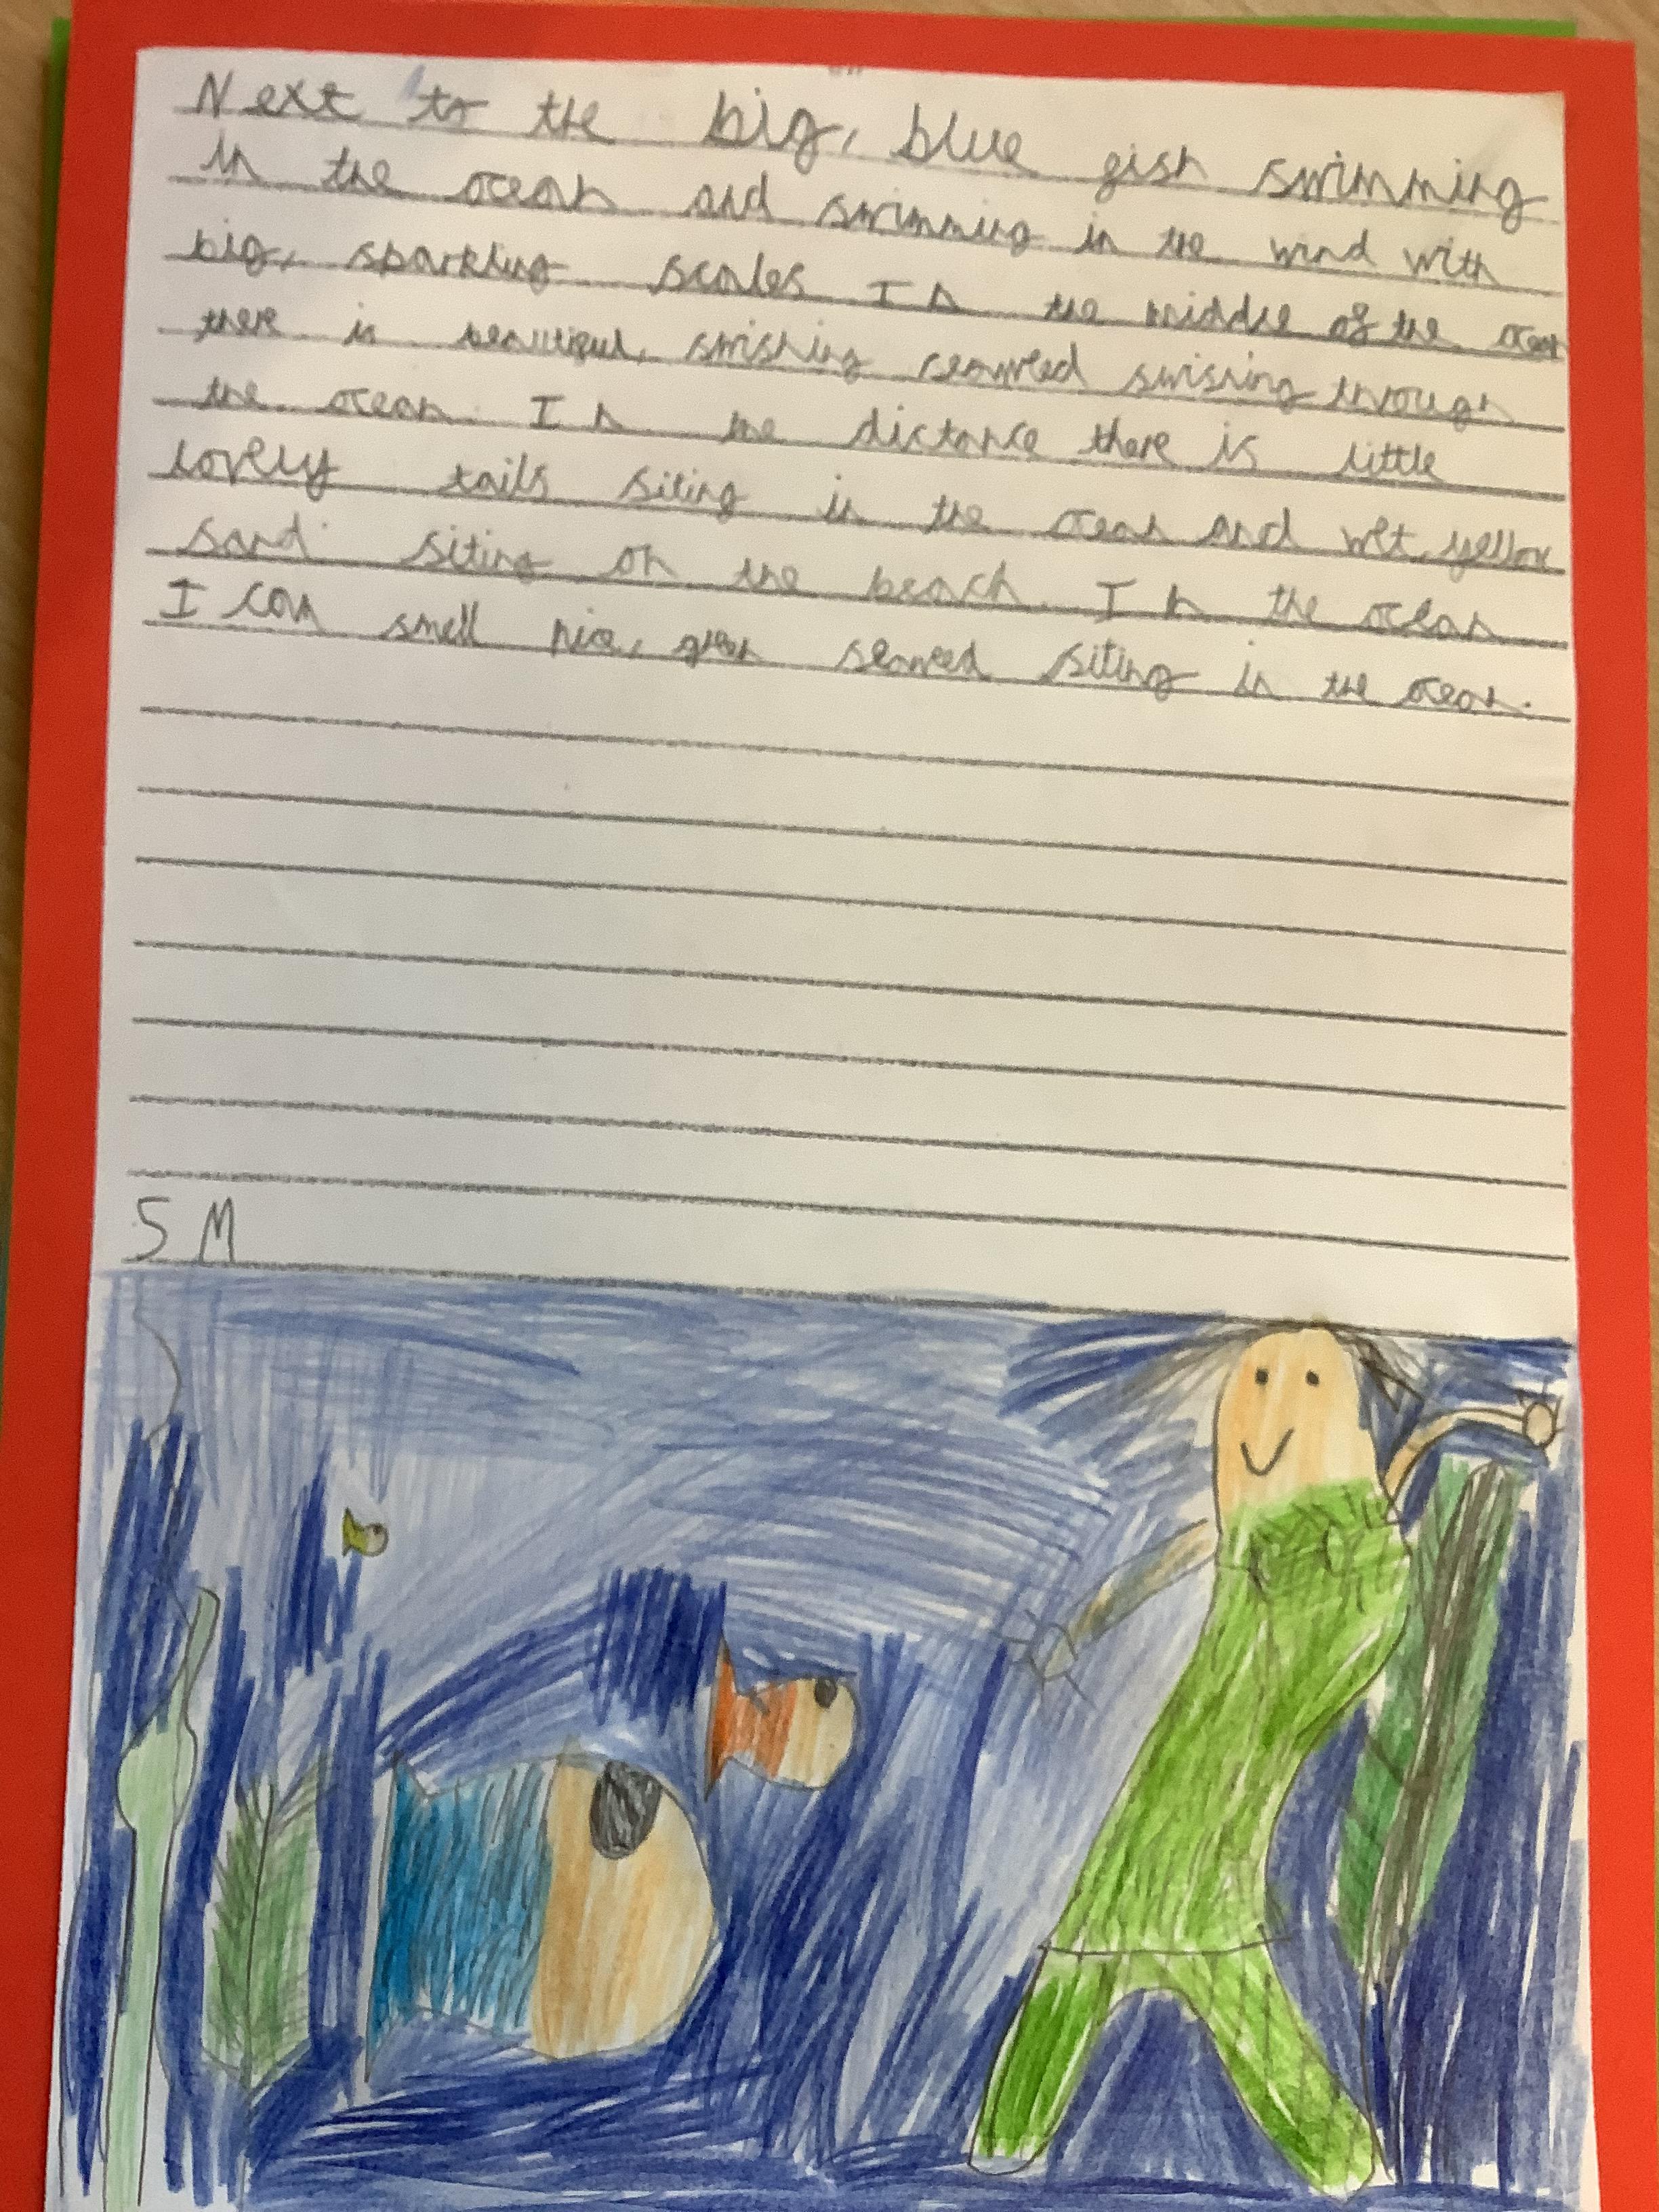 Next to the big, blue fish swimming
in the ocean and swimming in the wind with
big, sparkling scales In the middle of the ocean
there is beautiful, swishing seaweed swishing through
the ocean. In the distance there is little
lovely tails siting in the ocean and wet, yellow
sand siting on the beach. In the ocean
I can smell nice, green seaweed siting in the ocean.
S M